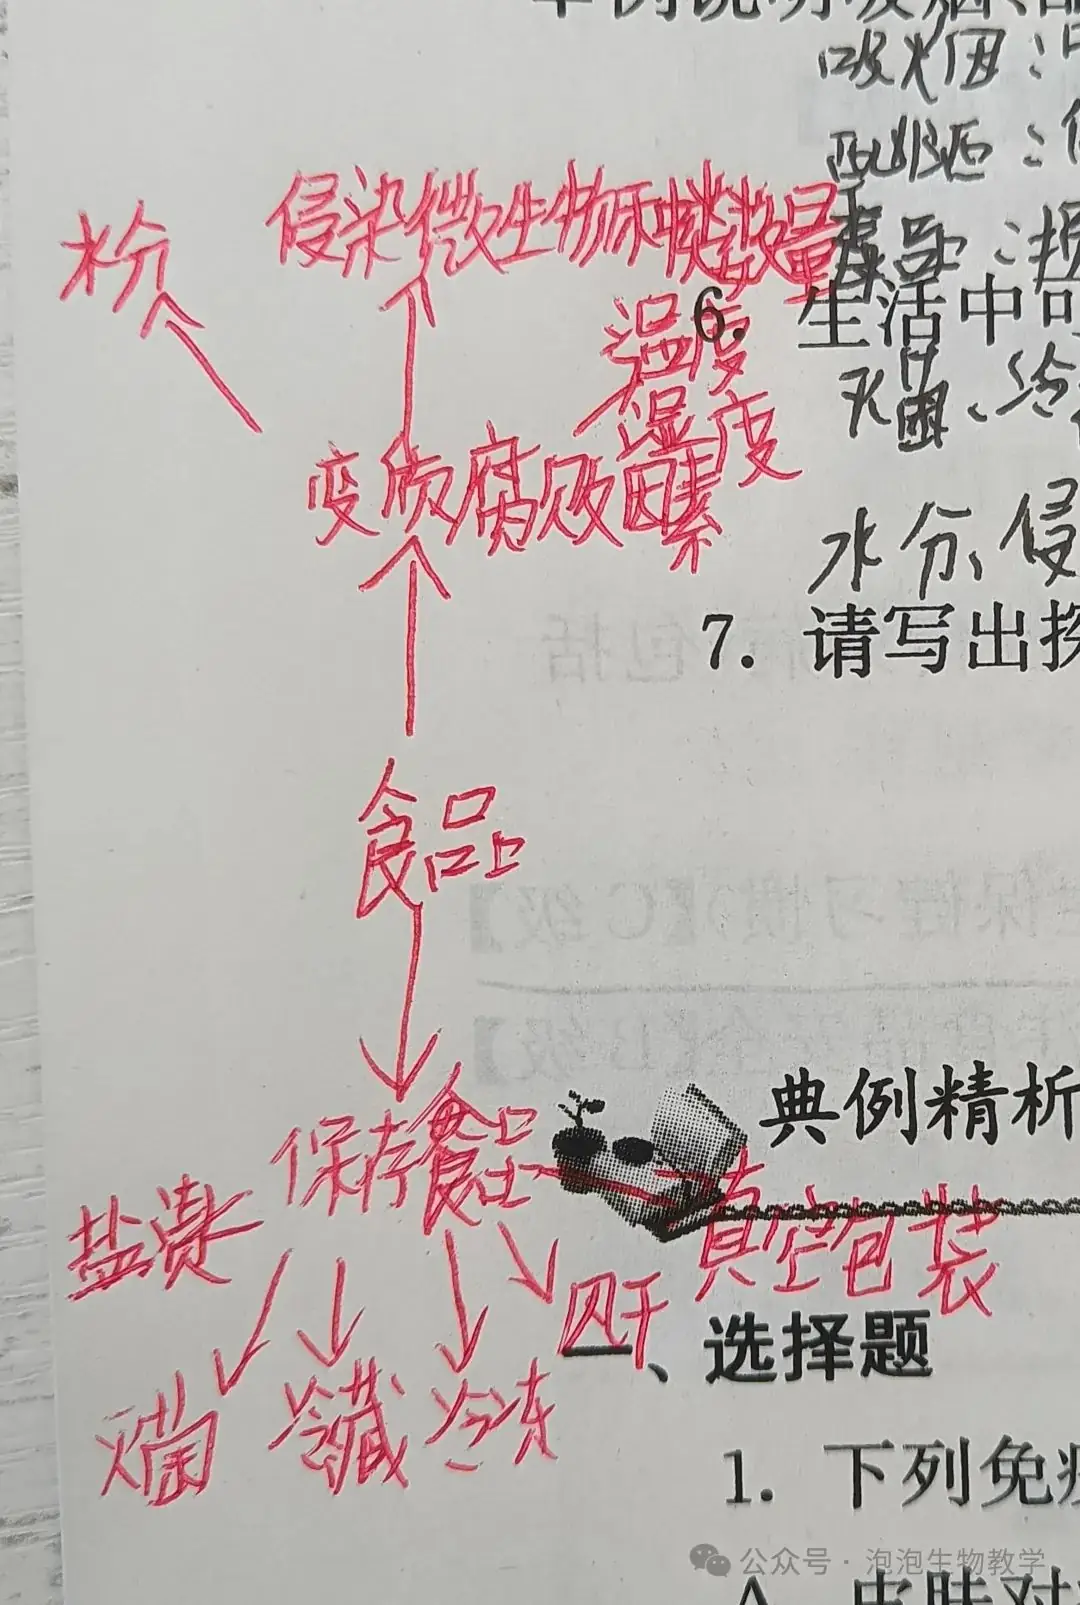 吸烟:
酗酒:
水分
侵染微生物种类数量
毒品:损
6. 生活中可
温度
湿度
灭菌、冷
变质腐败因素
水分、侵
7. 请写出探
食品
典例精析
保存食品
盐渍
真空包装
风干
一、选择题
灭菌
冷藏
冷冻
1. 下列免疫
公众号·泡泡生物教学
A. 皮肤对